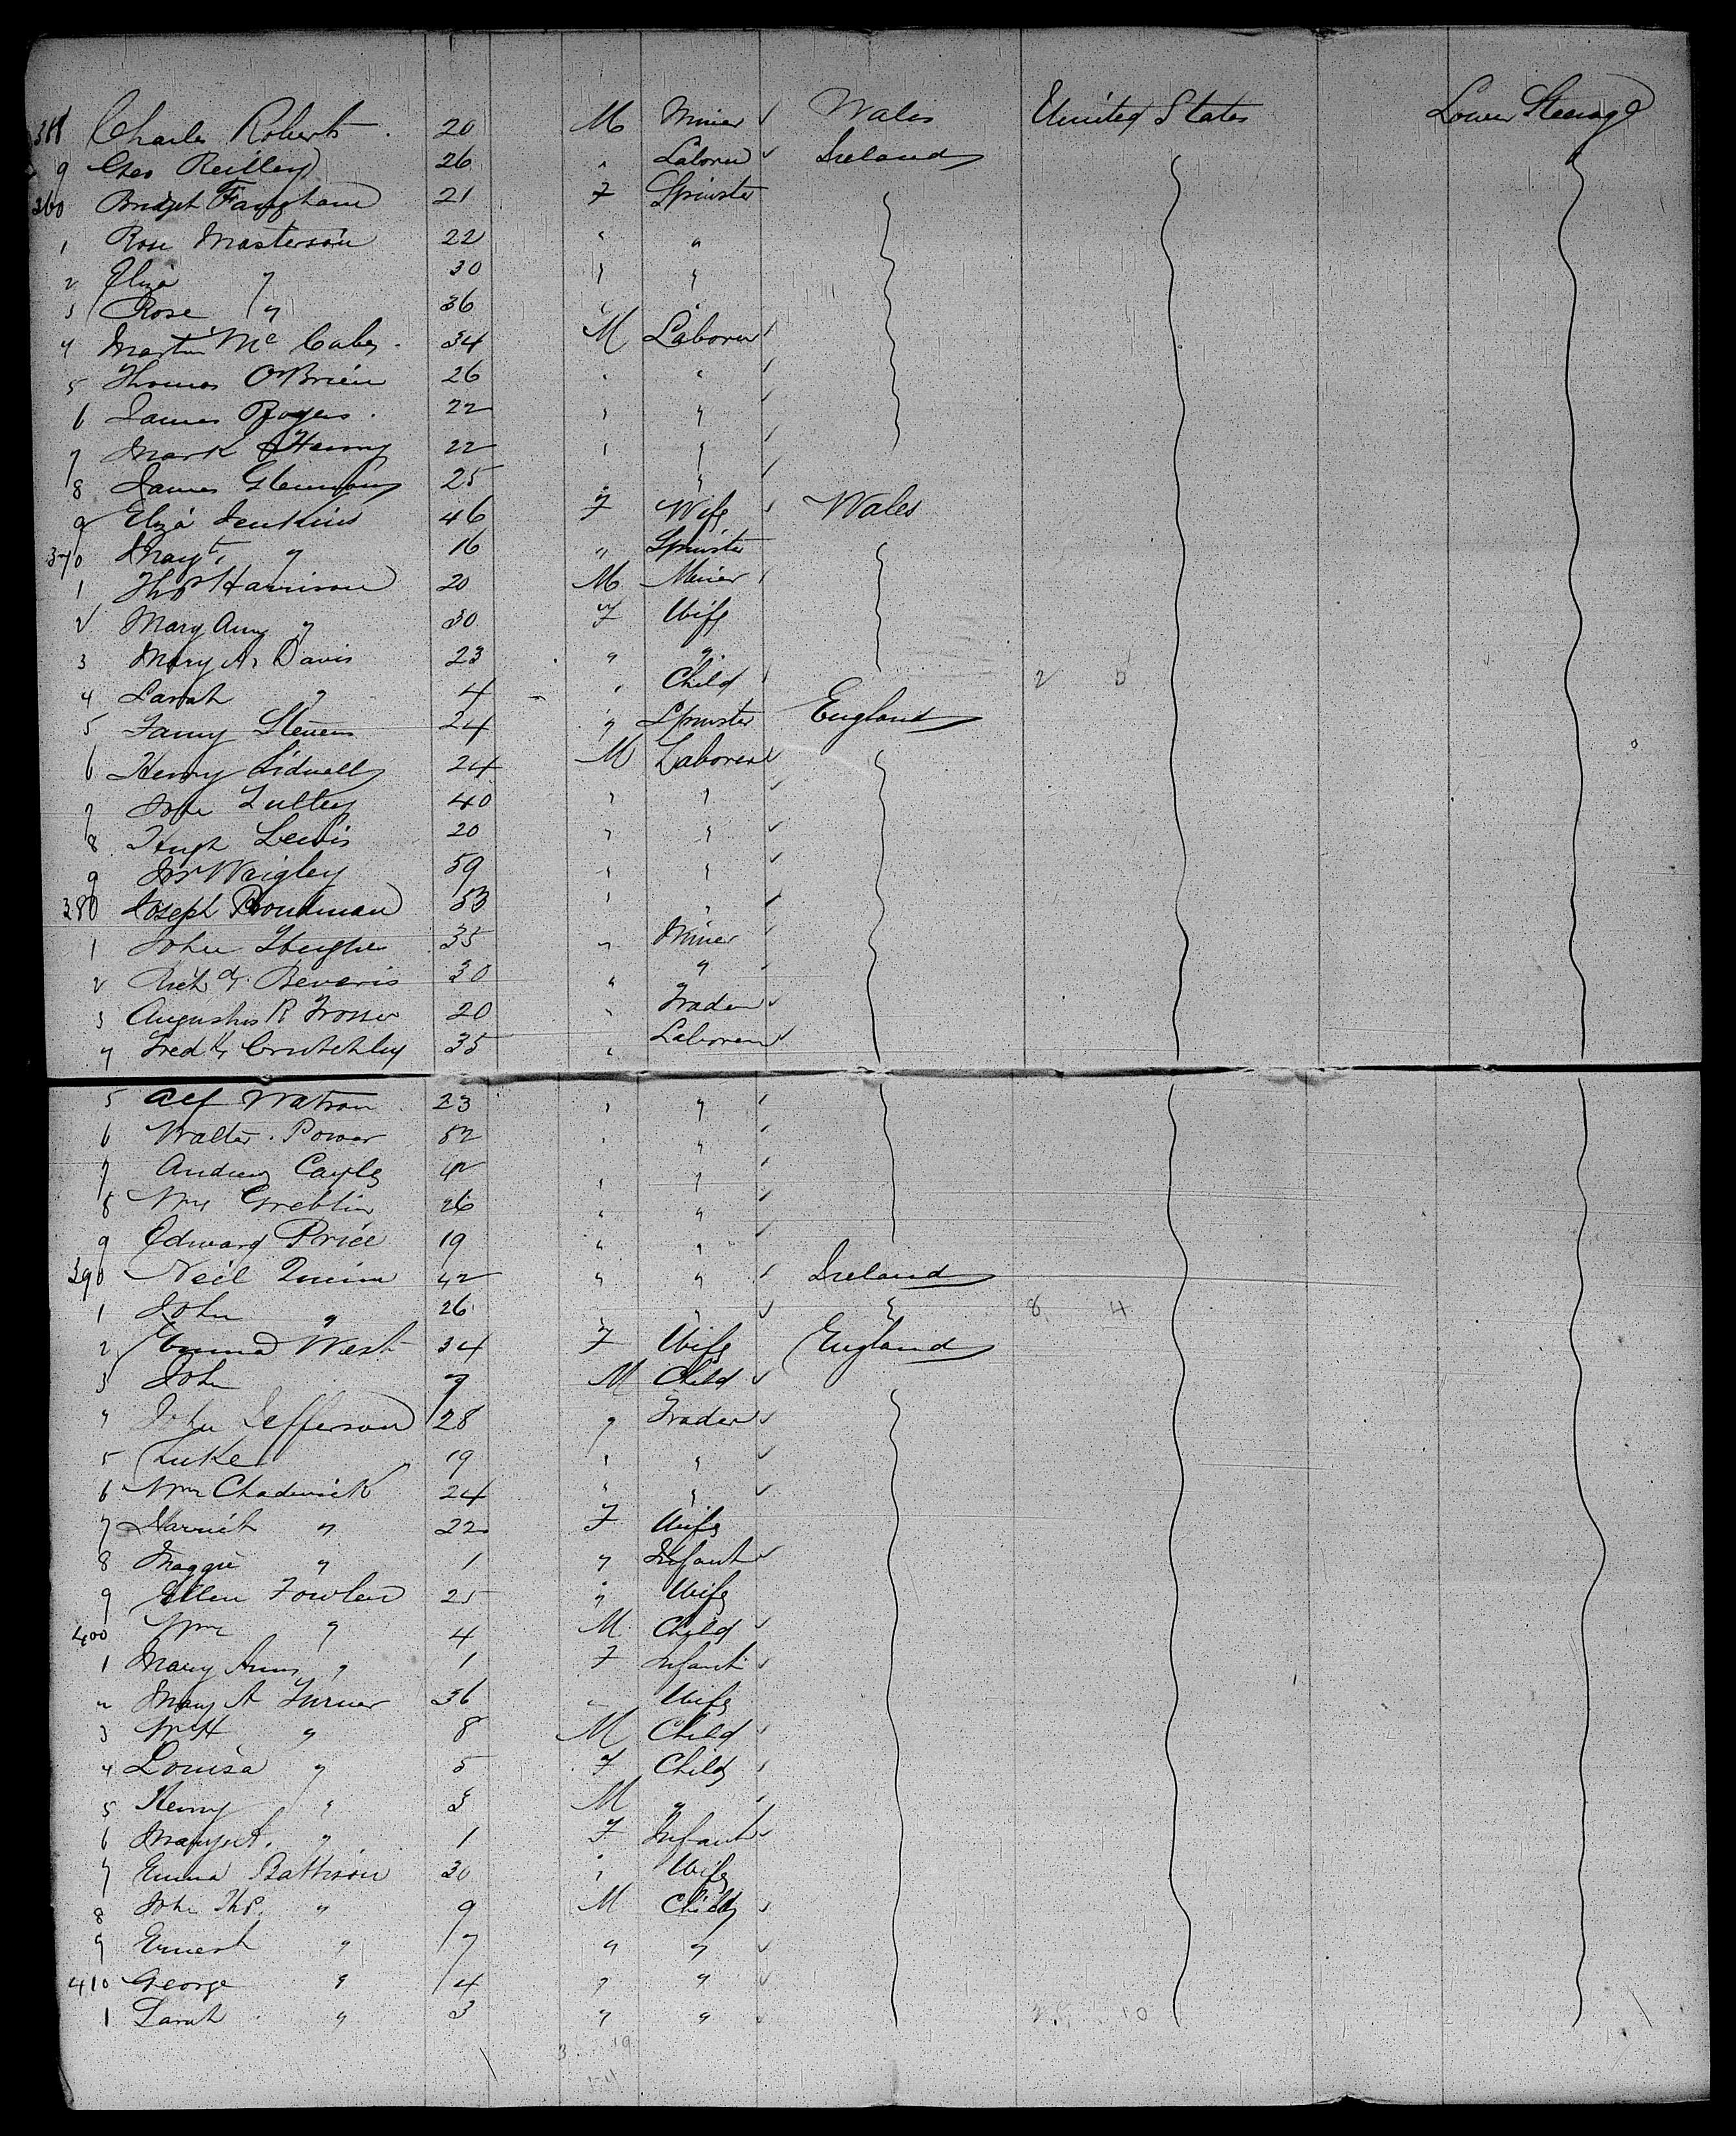 358 Charles Roberts . 20 M Miner ✓ Wales United States Lower Steerage
9 Geo Reilley 26 " Laborer ✓ Ireland
360 Bridget 21 F Spinster
1 Rose Masterson 22 " "
2 Eliza " 30 " "
3 Rose " 36 " "
4 Martin Mc Cabe . 34 M Laborer
5 Thomas O'Brien 26 " "
6 James Rogers . 22 " "
7 Mark Henry 22 " "
8 James 25 "
9 Eliza Jenkins 46 F Wife Wales
370 Margt " 16 " Spinster
1 Thos Harrison 20 M Miner
2 Mary Ann " 30 F Wife
3 Mary A. Davis 23 " "
4 Sarah " 4 " Child 2
5 Fanny Stevens 24 " Spinster England
6 Henry Sidwell 24 M Laborer ✓
7 John 40 " "
8 Hugh Lewis 20 " "
9 Jos Waigley 59 " "
380 Joseph 53 " "
1 John Hughes 35 " Miner
2 Richd Bevans 30 " "
3 Augustus R 20 " Trader ✓
4 Fredk Crutchley 35 " Laborer ✓
5 Alf Watson 23 " "
6 Walter Power 52 " "
7 Andrew 42 " "
8 Wm 26 " "
9 Edward Price 19 " "
390 Neil Quinn 42 " " Ireland
1 John " 26 " ✓ " 8 4
2 Emma West 34 F Wife England
3 John 7 M Child ✓
4 John Jefferson 28 " Trader ✓
5 Luke 19 " " ✓
6 Wm Chadwick 24 " " ✓
7 Harriet " 22 F Wife
8 Maggie " 1 " Infant ✓
9 Ellen Fowler 25 " Wife
400 Wm " 4 M Child ✓
1 Mary Ann " 1 F Infant ✓
2 Mary A Turner 36 " Wife
3 Wm H " 8 M Child ✓
4 Louisa " 5 F Child ✓
5 Henry " 3 M " ✓
6 Mary A. " 1 F Infant ✓
7 Emma Battison 30 " Wife
8 John Thos. " 9 M Child ✓
9 Ernest " 7 " " ✓
410 George " 4 " " ✓
1 Sarah " 3 " " ✓ 10